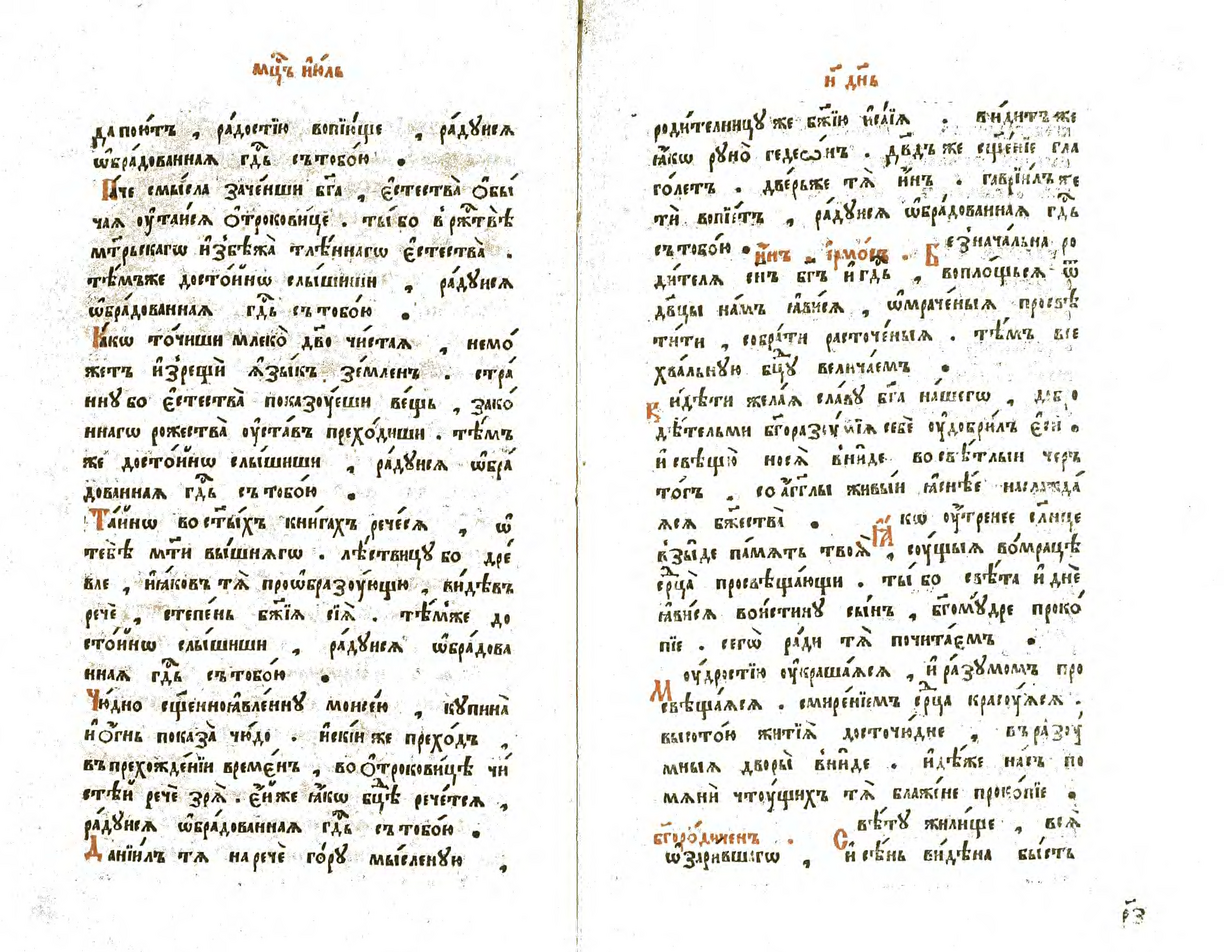 мц҃ъ и҆ю́ль
да пою́тъ , ра́достїю вопїю́ще , ра́дуися
ѡ҆бра́дованная гд҇ь съ тобо́ю .
Па́че смы́сла заче́нши бг҃а , є҆стества̀ ѻ҆бы́
чая ᲂу҆таи́ся ѻ҆трокови́це . ты́ бо в рж҇твѣ̀
мт҃рьскагѡ и҆збѣжа̀ тлѣ́ннагѡ є҆стества̀ .
тѣ́мъже досто́йнѡ слы́шиши , ра́дуися
ѡ҆бра́дованная гд҇ь съ тобо́ю .
Ꙗ҆́кѡ то́чиши млеко̀ дв҃о чи́стая , немо́
жетъ и҆зрещѝ ѧ҆зы́къ зе́мленъ . стра́
нну бо є҆стества̀ показꙋ́еши ве́щь , зако́
ннагѡ рожества̀ ᲂу҆ста́въ прехо́диши . тѣ́мъ
же досто́йнѡ слы́шиши , ра́дуися ѡ҆бра́
дованная гд҇ь съ тобо́ю .
Та́йнѡ во ст҃ы́хъ кни́гахъ рече́ся , ѡ҆
тебѣ̀ мт҃и вы́шнягѡ . лѣ́ствицу бо дре́
вле , и҆я́ковъ тѧ̀ проѡ҆бразꙋ́ющю , ви́дѣвъ
речѐ , степе́нь бж҃їя сїѧ̀ . тѣ́мже до
сто́йнѡ слы́шиши , ра́дуися ѡ҆бра́дова
нная гд҇ь съ тобо́ю .
Чю́дно сщ҃енноꙗ҆вле́нну моисе́ю , купина̀
и҆ ѻ҆́гнь показа̀ чю́до . и҆скі́й же прехо́дъ ,
въ прехожде́нїи време́нъ , во ѻ҆трокови́цѣ чи́
стѣй речѐ зрѧ̀ . є҆́йже ꙗ҆́кѡ бц҃ѣ рече́тся ,
ра́дуися ѡ҆бра́дованная гд҇ь съ тобо́ю .
Данїи́лъ тѧ̀ наречѐ го́ру мы́сленую ,
и҃ дн҃ь
роди́телницу же бж҃їю и҆са́їя . ви́дитъ же
ꙗ҆́кѡ руно̀ гедеѡ́нъ . дв҃дъ же сщ҃е́нїе гла
го́летъ . две́рь же тѧ̀ и҆́нъ . гаврїи́лъ же
тѝ вопїе́тъ , ра́дуися ѡ҆бра́дованная гд҇ь
съ тобо́ю . и҆́нъ . є҆рмо́съ . Безнача́льна ро
ди́теля сн҃ъ бг҃ъ и҆ гд҇ь , вопло́щься ѿ
дв҃цы на́мъ ꙗ҆ви́ся , ѡ҆мраче́ныя просвѣ
ти́ти , собра́ти расточе́ныя . тѣ́мъ все
хва́льную бц҃у велича́емъ .
Ви́дѣти жела́я сла́ву бг҃а на́шегѡ , добро
дѣ́тельми бг҃оразу́мїя себѐ ᲂу҆до́брилъ є҆сѝ .
и҆ свѣщю̀ носѧ̀ вни́де во свѣ́тлыи чер
то́гъ , со а҆́гг҃лы живы́й ꙗ҆снѣ́е наслажда́
яся бж҃ества̀ . Ꙗ҆́кѡ ᲂу҆́тренее сл҃нце
взы́де па́мять твоѧ̀ , сꙋ́щыя во мра́цѣ
се҇рца̀ просвѣща́ющи . ты́ бо свѣ́та и҆ днѐ
ꙗ҆ви́ся вои́стину сы́нъ , бг҃ому́дре проко́
пїе . сегѡ̀ ра́ди тѧ̀ почита́емъ .
Мꙋ́дростїю ᲂу҆краша́яся , и҆ ра́зумомъ про
свѣща́яся . смире́нїемъ се҇рца красꙋ́яся .
высото́ю житїѧ̀ досточю́дне , въ разꙋ́
мныя дворы̀ вни́де . и҆дѣ́же на́съ по
мянѝ чтꙋ́щихъ тѧ̀ блаже́не проко́пїе .
бг҃оро́диченъ . Свѣ́ту жили́ще , вся̀
ѡ҆зари́вшагѡ , и҆ сѣ́нь ви́дѣна бы́сть
р҃з